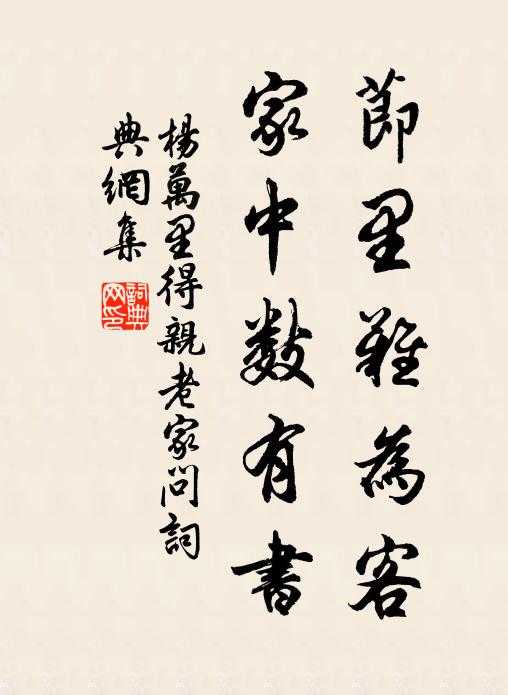 節里難為客
家中數有書
楊萬里得親老家問詞
典網集
詞典網印